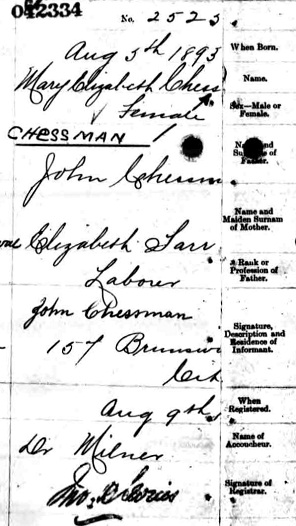 042334
No. 2523
Aug 5th 1893
When Born.
Mary Elizabeth Chess
Name.
Female
Sex—Male or
Female.
CHESSMAN
Name and
Surname of
Father.
John Chessm
Name and
Maiden Surnam
of Mother.
Elizabeth Tarr
Rank or
Profession of
Father.
Laborer
John Chessman
Signature,
Description and
Residence of
Informant.
157 Brunswi
Aug 9th
When
Registered.
Dr Milner
Name of
Accoucheur.
Signature of
Registrar.